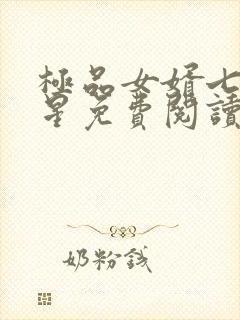 極品女婿七
星免費閱讀
奶粉錢